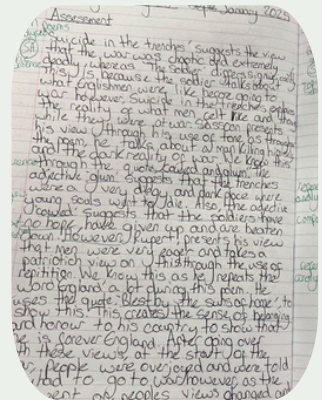 January 2025
Assessment
Suicide in the trenches' suggests the view
that the war was chaotic and extremely
deadly, whereas 'The Soldier'
This is because the soldier talks about
what Englishmen were like before going to
war however, Suicide in the trenches
the reality of what men felt like
while they were at war. Sassoon presents
his view through his use of tone as though
the poem he talks about a man killing
and the dark reality of war. We know this
through the quote 'cowed and glum', the
adjective 'glum' suggests that the trenches
were a very dingy and dark place were
young souls went to die. Also the adjective
'cowed' suggests that the soldiers have
no hope, have given up and are beaten
down. However, Rupert presents his view
that men were very eager and takes a
patriotich view on this through the use of
repitition. We know this as he repeats the
word 'england' a lot during this poem. He
uses the quote: 'Blest by the suns of home', to
show this. This creates the sense of belonging
and honour to his country to show that
he is forever England. After going over
these views, at the start of the
People were overjoyed and were told
had to go to war however, as the
went on peoples views changed and